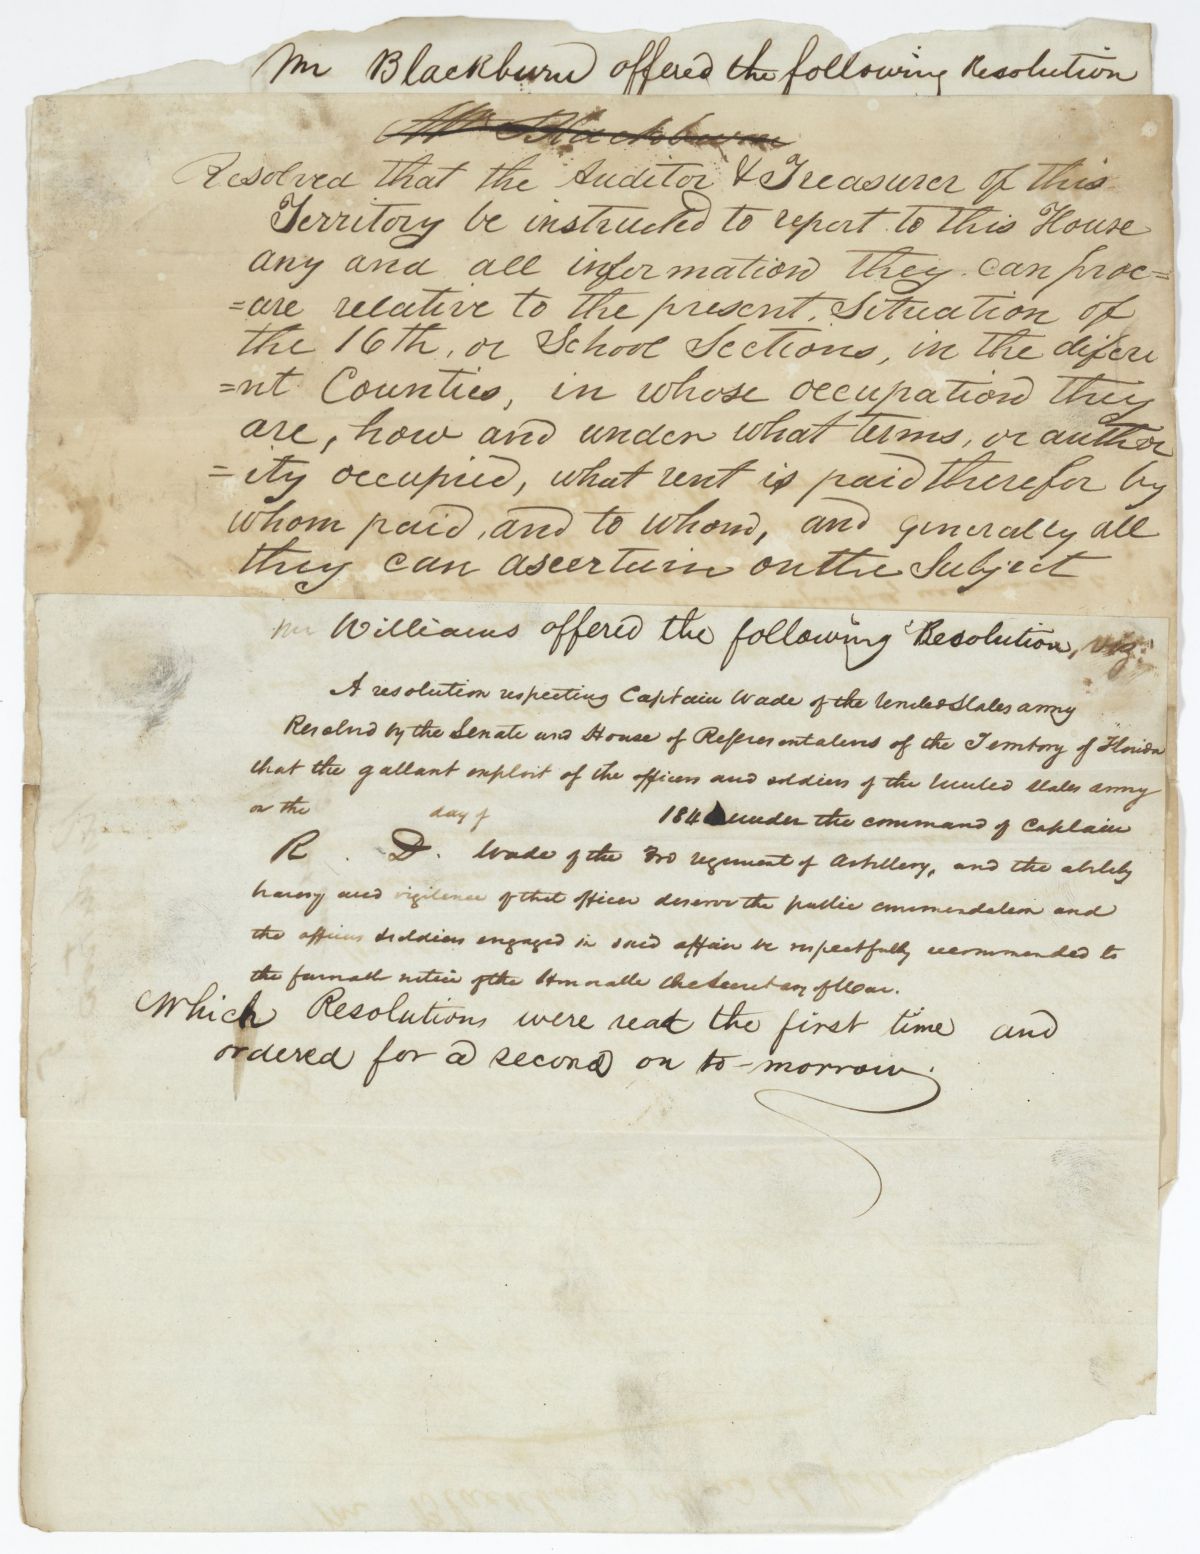 Mr Blackburn offered the following Resolution
Mr Blackburn
Resolved that the Auditor & Treasurer of this
Territory be instructed to report to this House
any and all information they can proc=
=are relative to the present Situation of
the 16th, or School Sections, in the diferе
=nt Counties, in whose occupation they
are, how and under what terms, or author
=ity occupied, what rent is paid therefor by
whom paid, and to whom, and generally all
they can ascertain on the Subject
Mr Williams offered the following Resolution, viz:
A resolution respecting Captain Wade of the United States army
Resolved by the Senate and House of Representatives of the Territory of Florida
that the gallant exploit of the officers and soldiers of the United States army
on the day of 184 under the command of Captain
R. D. Wade of the 3rd regiment of Artillery, and the ability
bravery and vigilence of that officer deserve the public commendation and
the officers & soldiers engaged in said affair be respectfully recommended to
the notice of the Honorable the Secretary of War.
Which Resolutions were read the first time and
ordered for a second on to-morrow.